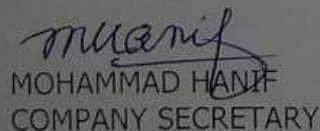 mHanif
MOHAMMAD HANIF
COMPANY SECRETARY